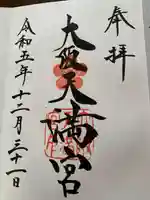 奉拝
大阪天満宮
令和五年十二月三十一日